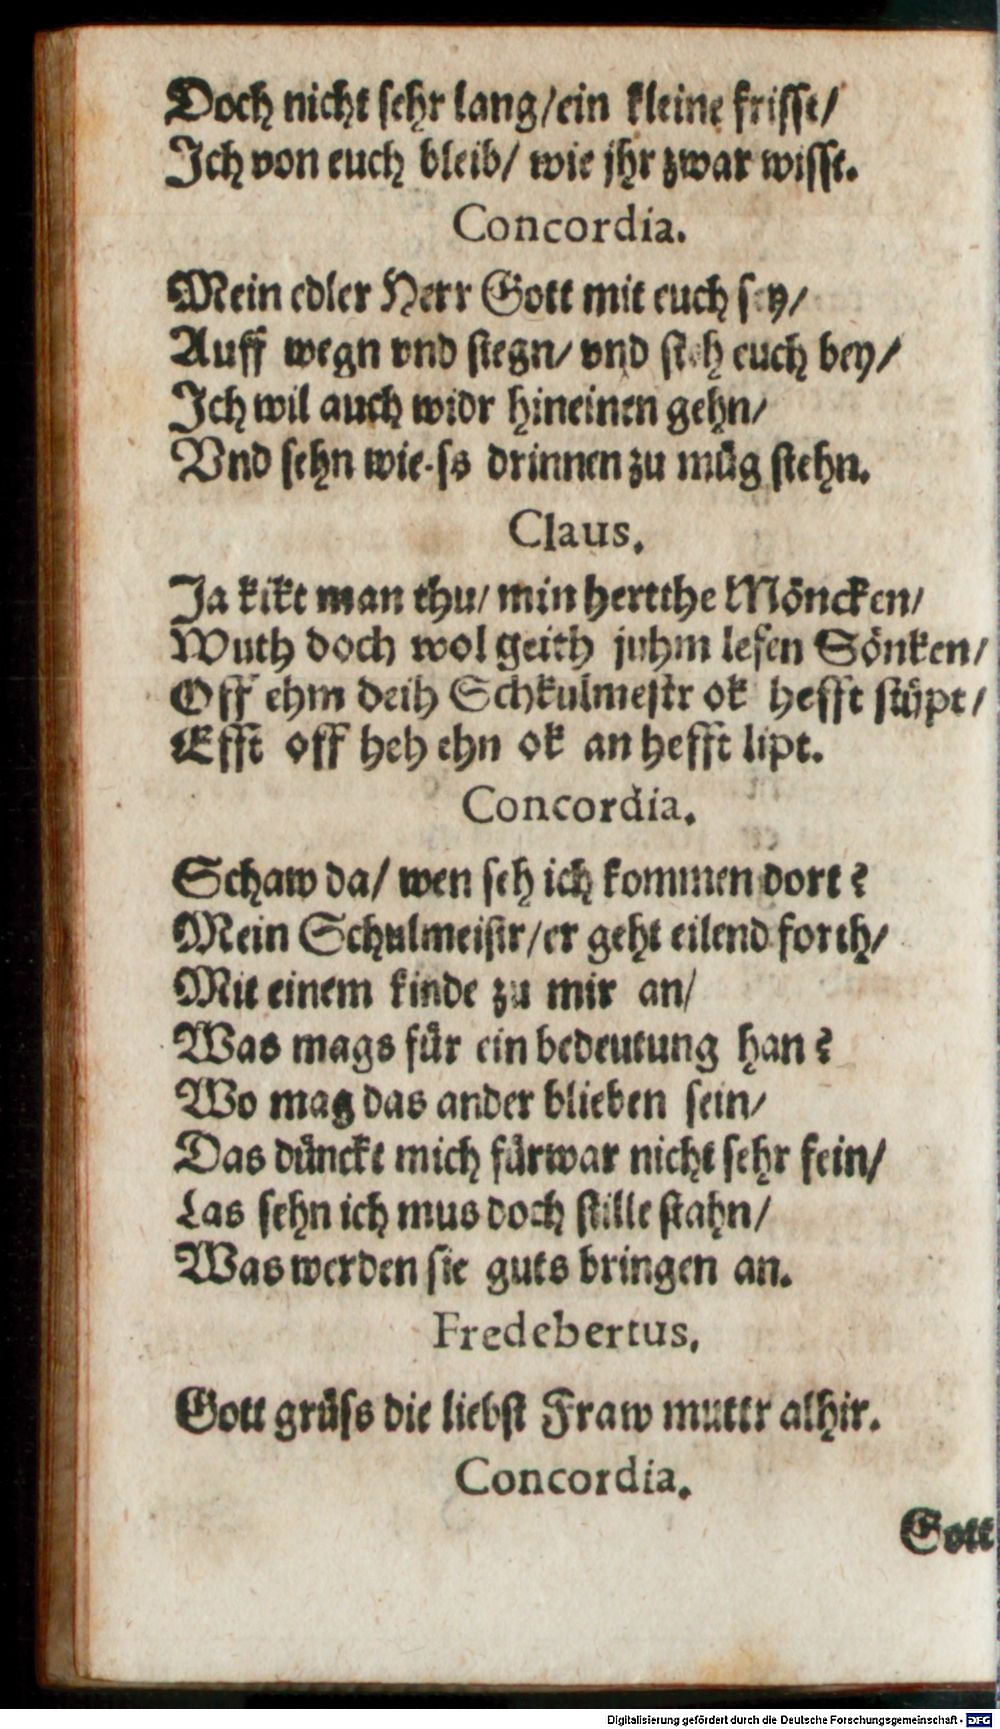 Doch nicht sehr lang/ein kleine frisst/
Ich von euch bleib/ wie jhr zwar wisst.
Concordia.
Mein edler Herr Gott mit euch sey/
Auff wegn vnd stegn/ vnd steh euch bey/
Ich wil auch widr hineinen gehn/
Vnd sehn wie-ss drinnen zu müg stehn.
Claus.
Ja kikt man thu/ min hertthe Möncken/
Wuth doch wol geith juhm lefen Sönken/
Off ehm deih Schkulmestr ok hefft stüpt/
Efft off heh ehn ok an hefft lipt.
Concordia.
Schaw da/ wen seh ich kommen dort?
Mein Schulmeistr/er geht eilend forth/
Mit einem kinde zu mir an/
Was mags für ein bedeutung han?
Wo mag das ander blieben sein/
Das dünckt mich fürwar nicht sehr fein/
Las sehn ich mus doch stille stahn/
Was werden sie guts bringen an.
Fredebertus.
Gott grüss die liebst Fraw muttr alhir.
Concordia.
Gott
Digitalisierung gefördert durch die Deutsche Forschungsgemeinschaft - DFG